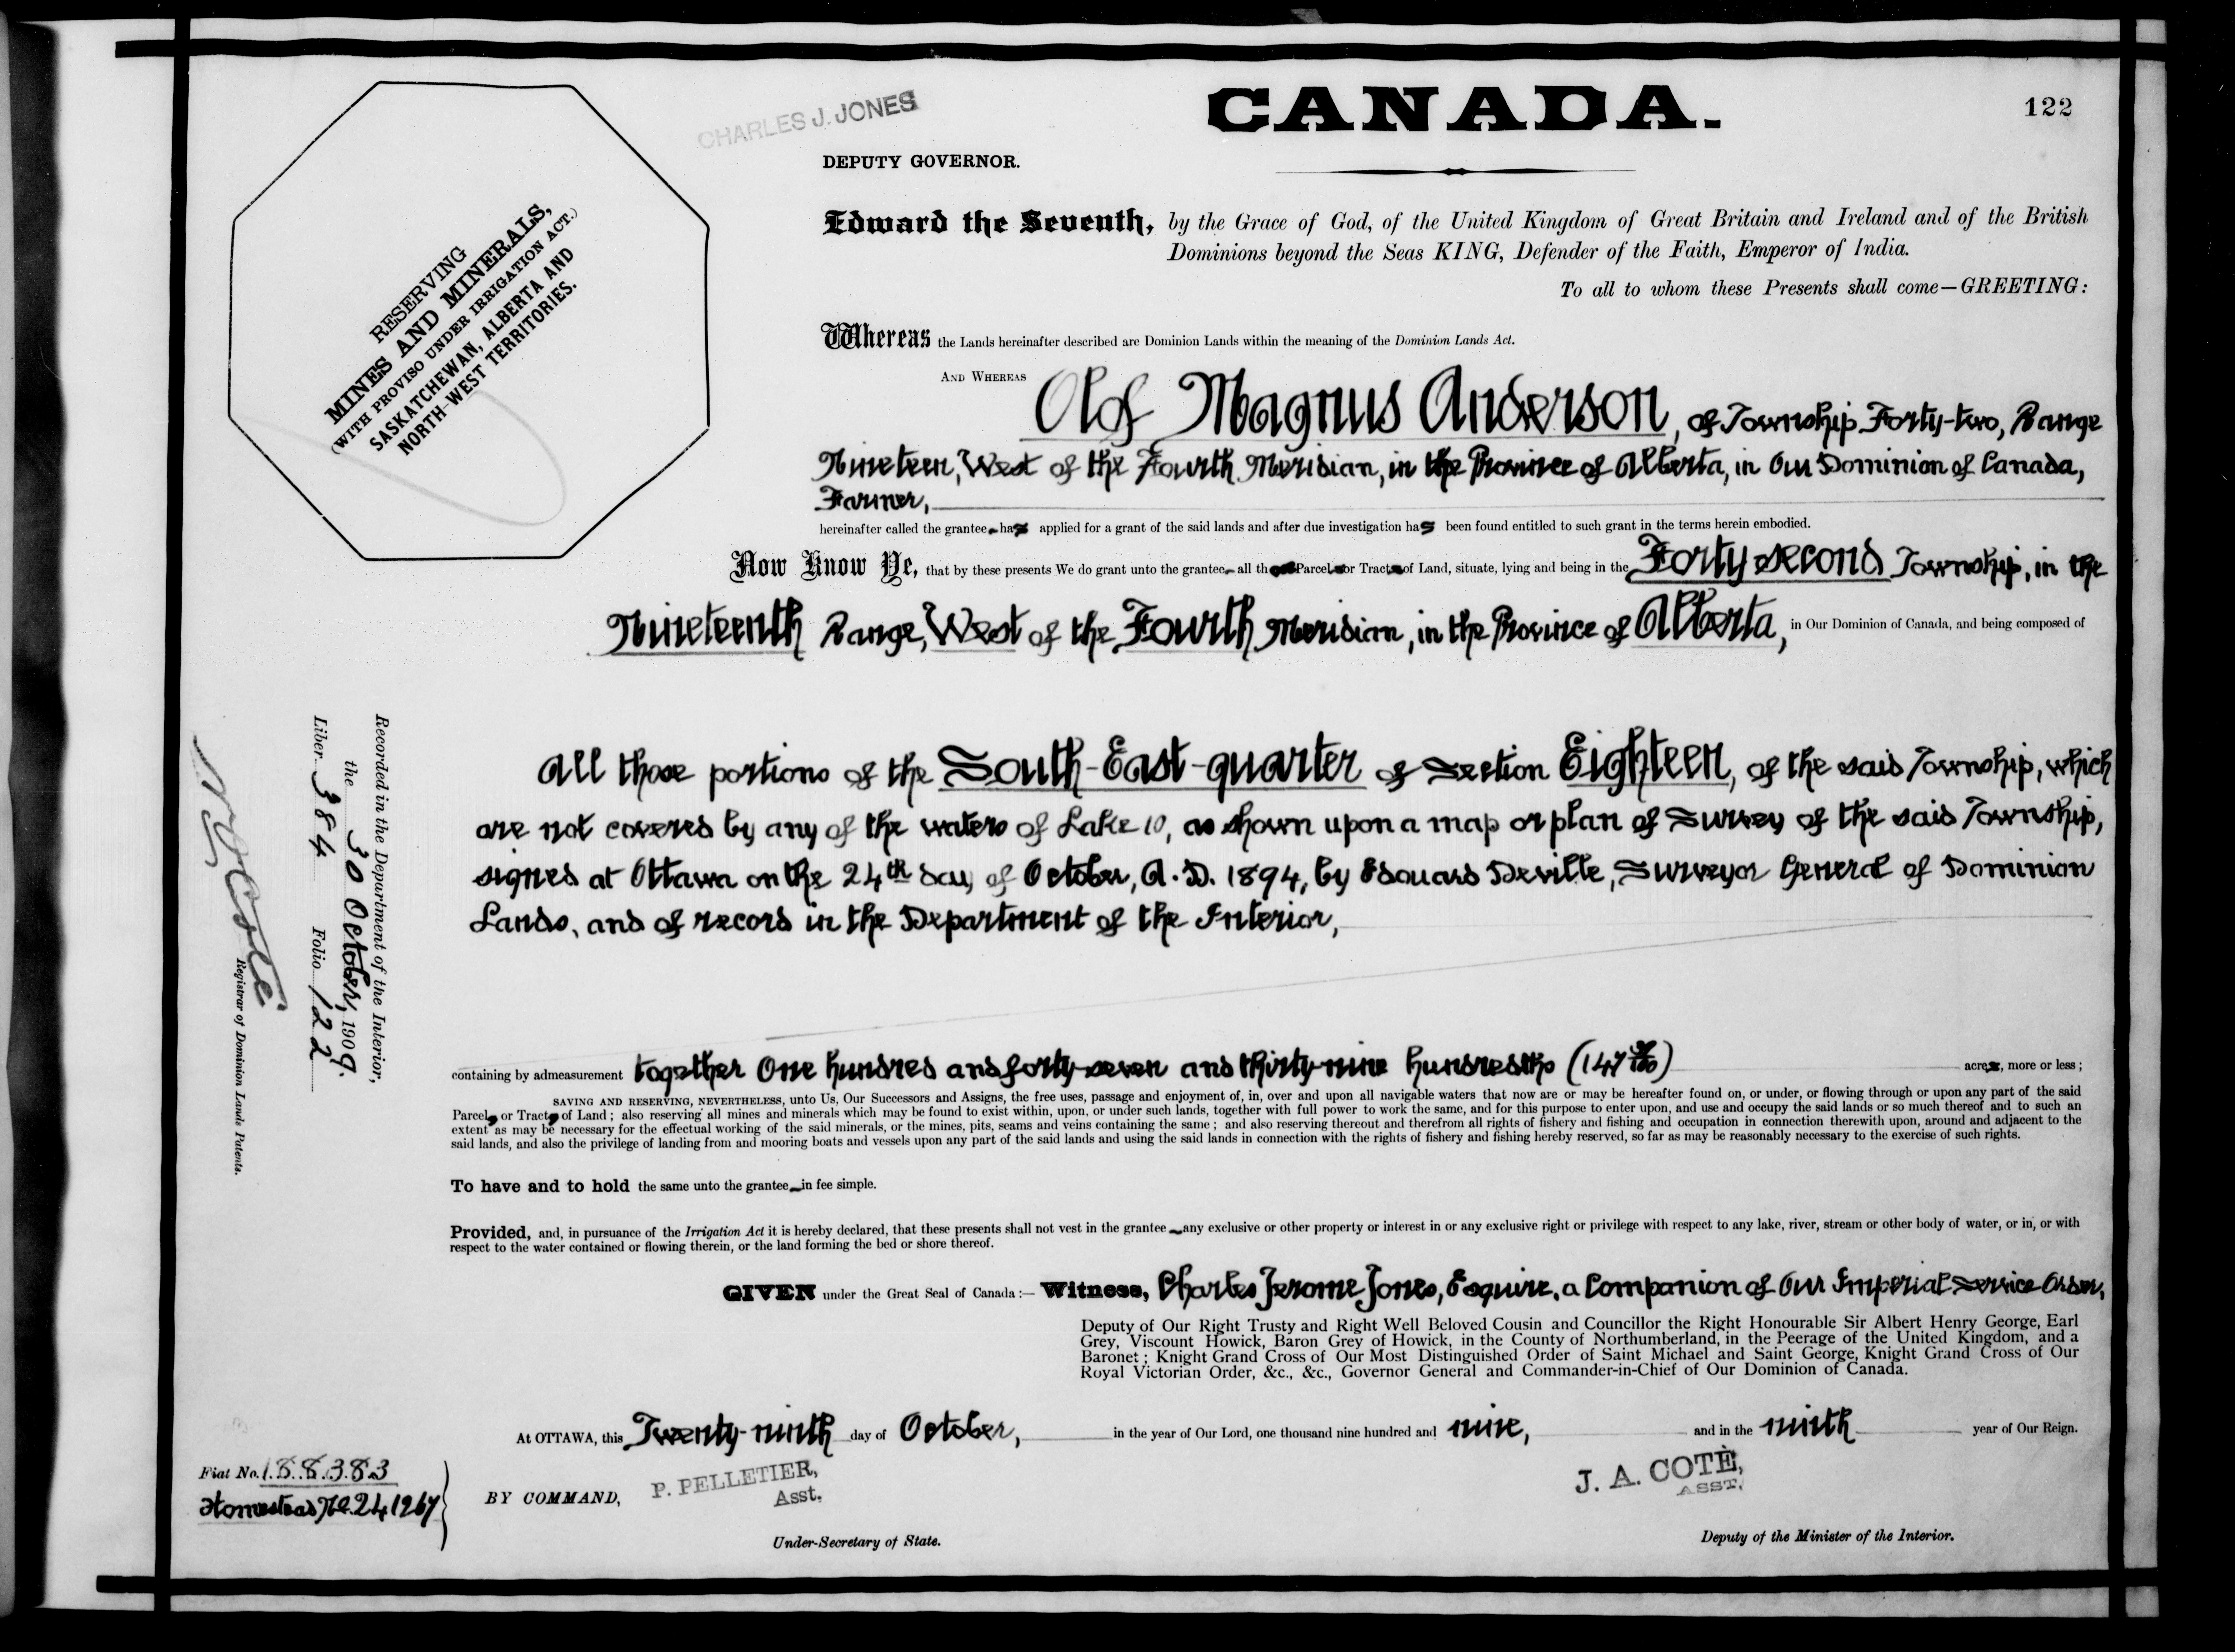 CHARLES J. JONES
CANADA.
122
DEPUTY GOVERNOR.
RESERVING
MINES AND MINERALS,
(WITH PROVISO UNDER IRRIGATION ACT.)
SASKATCHEWAN, ALBERTA AND
NORTH-WEST TERRITORIES.
Edward the Seventh, by the Grace of God, of the United Kingdom of Great Britain and Ireland and of the British
Dominions beyond the Seas KING, Defender of the Faith, Emperor of India.
To all to whom these Presents shall come—GREETING:
Whereas the Lands hereinafter described are Dominion Lands within the meaning of the Dominion Lands Act.
AND WHEREAS Olof Magnus Anderson, of Township Forty-two, Range
Nineteen, West of the Fourth Meridian, in the Province of Alberta, in Our Dominion of Canada,
Farmer,
hereinafter called the grantee has applied for a grant of the said lands and after due investigation has been found entitled to such grant in the terms herein embodied.
Now Know Ye, that by these presents We do grant unto the grantee all th Parcel or Tract of Land, situate, lying and being in the Forty second Township, in the
Nineteenth Range, West of the Fourth Meridian, in the Province of Alberta, in Our Dominion of Canada, and being composed of
All those portions of the South-East-quarter of Section Eighteen, of the said Township, which
are not covered by any of the waters of Lake 10, as shown upon a map or plan of Survey of the said Township,
signed at Ottawa on the 24th day of October, A.D. 1894, by Edouard Deville, Surveyor General of Dominion
Lands, and of record in the Department of the Interior,
Recorded in the Department of the Interior,
the 30 October, 1909.
Liber 384 Folio 122
N O Coté
Registrar of Dominion Lands Patents.
containing by admeasurement together One hundred and forty-seven and thirty-nine hundredths (147 39/100) acres, more or less;
SAVING AND RESERVING, NEVERTHELESS, unto Us, Our Successors and Assigns, the free uses, passage and enjoyment of, in, over and upon all navigable waters that now are or may be hereafter found on, or under, or flowing through or upon any part of the said
Parcel, or Tract, of Land; also reserving all mines and minerals which may be found to exist within, upon, or under such lands, together with full power to work the same, and for this purpose to enter upon, and use and occupy the said lands or so much thereof and to such an
extent as may be necessary for the effectual working of the said minerals, or the mines, pits, seams and veins containing the same; and also reserving thereout and therefrom all rights of fishery and fishing and occupation in connection therewith upon, around and adjacent to the
said lands, and also the privilege of landing from and mooring boats and vessels upon any part of the said lands and using the said lands in connection with the rights of fishery and fishing hereby reserved, so far as may be reasonably necessary to the exercise of such rights.
To have and to hold the same unto the grantee in fee simple.
Provided, and, in pursuance of the Irrigation Act it is hereby declared, that these presents shall not vest in the grantee any exclusive or other property or interest in or any exclusive right or privilege with respect to any lake, river, stream or other body of water, or in, or with
respect to the water contained or flowing therein, or the land forming the bed or shore thereof.
GIVEN under the Great Seal of Canada:— Witness, Charles Jerome Jones, Esquire, a Companion of Our Imperial Service Order,
Deputy of Our Right Trusty and Right Well Beloved Cousin and Councillor the Right Honourable Sir Albert Henry George, Earl
Grey, Viscount Howick, Baron Grey of Howick, in the County of Northumberland, in the Peerage of the United Kingdom, and a
Baronet; Knight Grand Cross of Our Most Distinguished Order of Saint Michael and Saint George, Knight Grand Cross of Our
Royal Victorian Order, &c., &c., Governor General and Commander-in-Chief of Our Dominion of Canada.
At OTTAWA, this Twenty-ninth day of October, in the year of Our Lord, one thousand nine hundred and nine, and in the ninth year of Our Reign.
Fiat No. 188383
Homestead No. 241267
BY COMMAND,
P. PELLETIER,
Asst.
Under-Secretary of State.
J. A. COTÈ,
ASST.
Deputy of the Minister of the Interior.